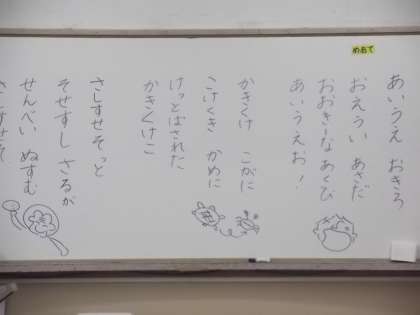 めあて
あいうえ おきろ
おえうい あさだ
おおきーな あくび
あいうえお！
かきくけ こがに
こけくき かめに
けっとばされた
かきくけこ
さしすせそっと
そせすし さるが
せんべい ぬすむ
さしすせそ